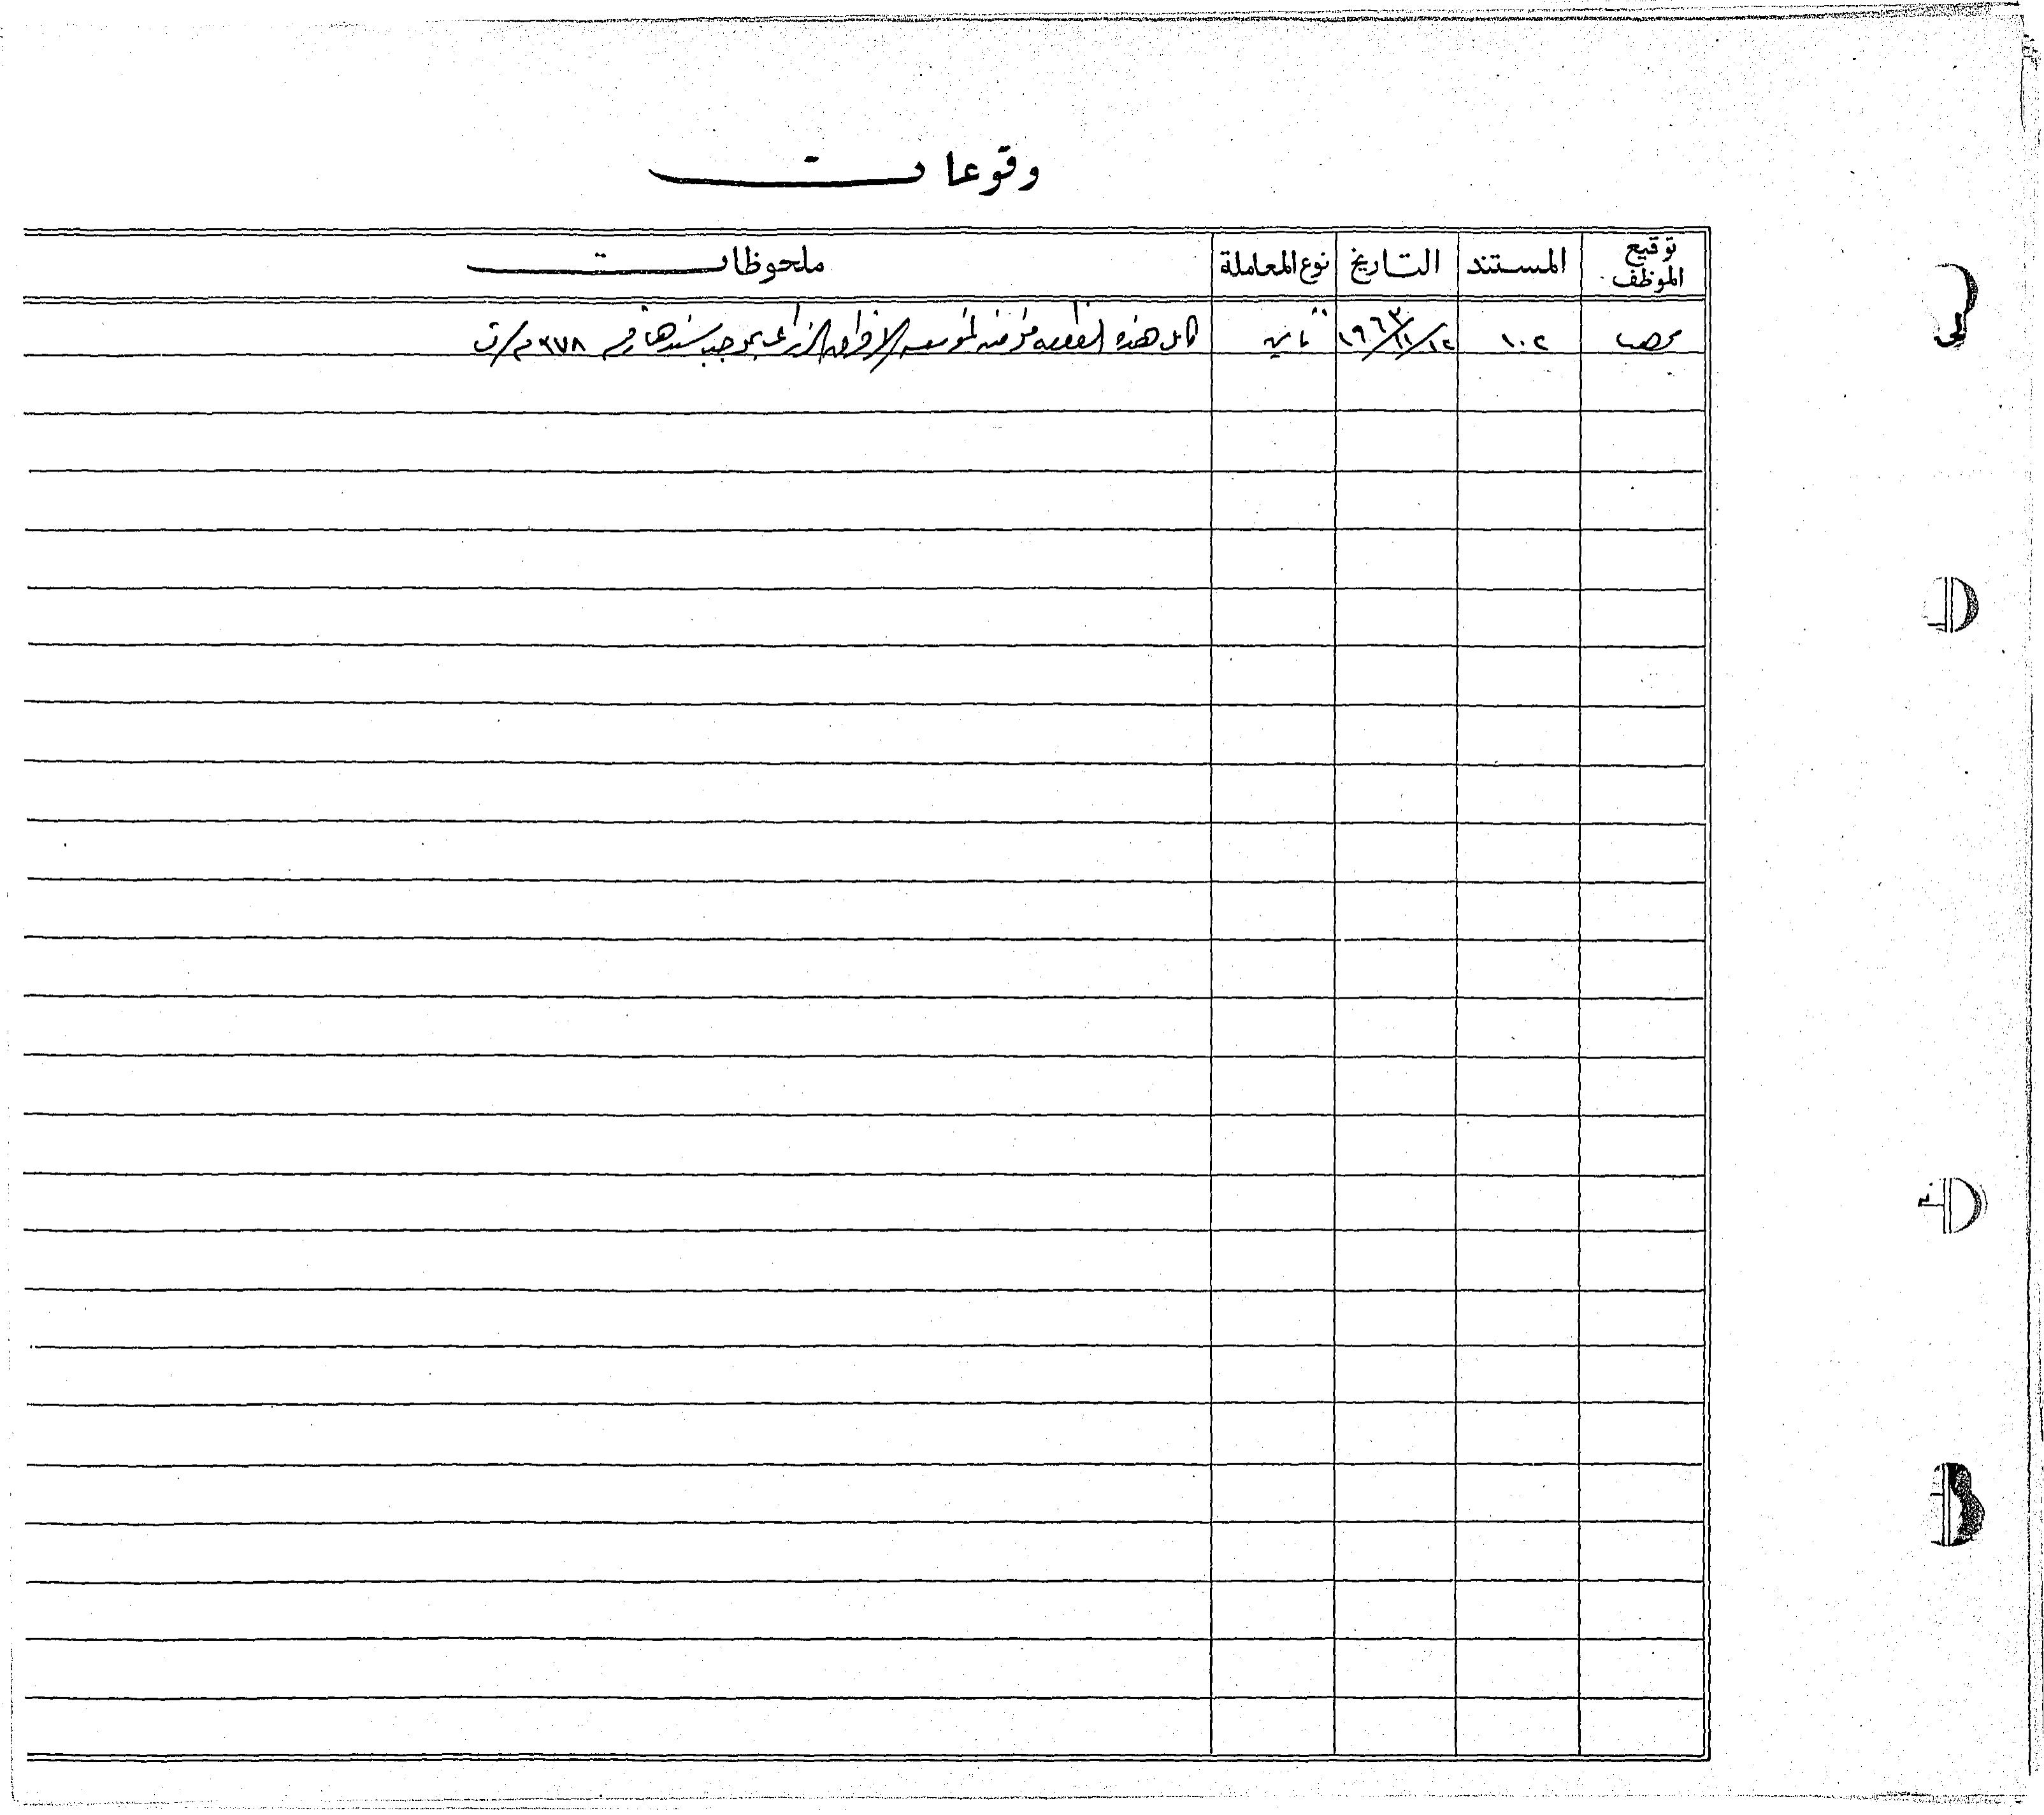 وقوعات
توقيع الموظف المستند التاريخ نوع المعاملة ملحوظات
١٠٢ ١٢/١١/١٩٦٣ تأمين كامل هذه القطعة مؤمنه لمؤسسة الاقراض الزراعي بموجب سندها رقم ٩٧٨ م/ت